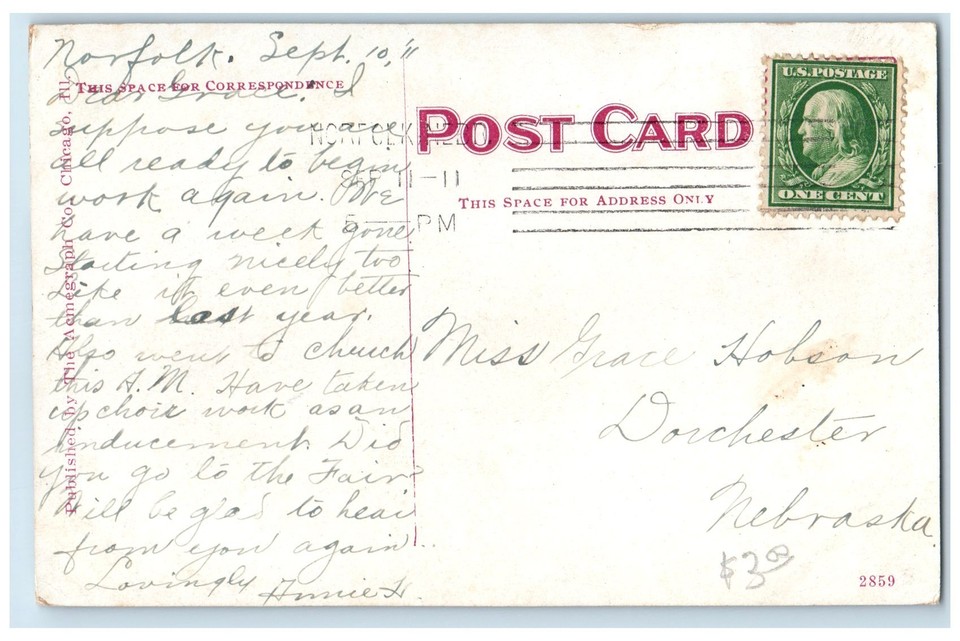 Norfolk. Sept. 10, '11
THIS SPACE FOR CORRESPONDENCE
Dear Grace: I
suppose you are
all ready to begin
work again. We
have a week gone
Starting nicely too
Like it even better
than last year.
Also went to church
this A.M. Have taken
up choir work as an
inducement. Did
you go to the Fair
Will be glad to hear
from you again..
Lovingly Annie H.
Published by The Acmegraph Co., Chicago, Ill.
POST CARD
NORFOLK, NEB.
SEP 11-11
5 — PM
THIS SPACE FOR ADDRESS ONLY
U.S. POSTAGE
ONE CENT
Miss Grace Hobson
Dorchester
Nebraska.
$3.00
2859